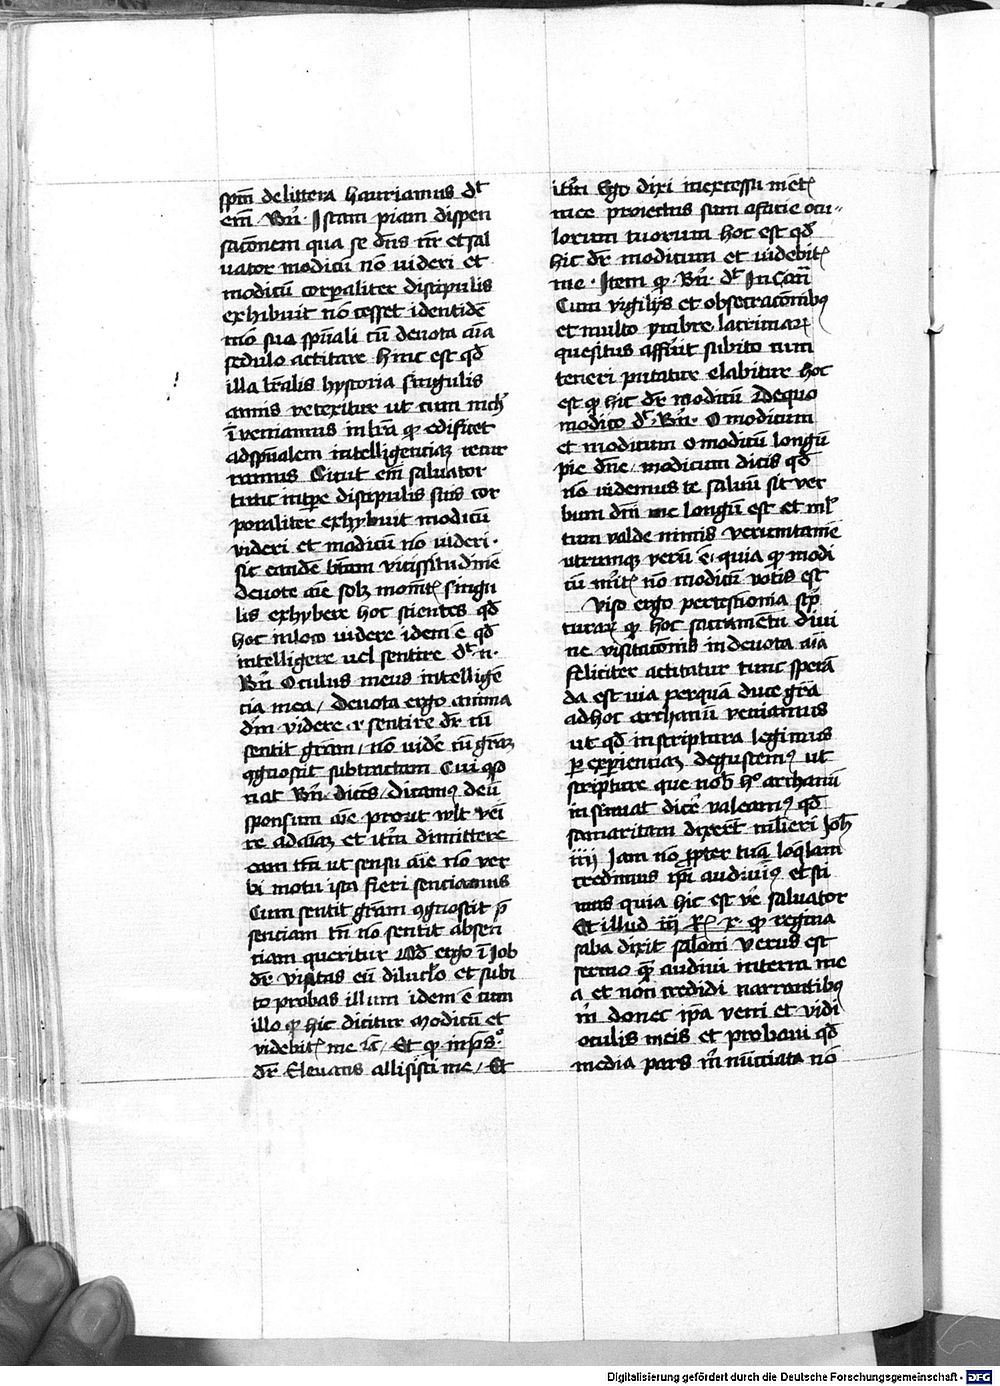 spm̄ de littera hauriamus dt
em̄ · Bn̄ · Istam piam dispen
sac̄onem qua se dn̄s nr̄ et sal
uator modicū nō videri et
modicū corꝑaliter discipulis
exhibuit nō cesset identidē
mō suo spūali cū deuota aīa
sedulo actitare hinc est qd̄
illa lr̄alis hystoria singulis
annis retexitur ut cum nich̄
īveniamus in lr̄a qd̄ edificet
ad spūalem intelligenciaʒ recur
ramus Sicut em̄ saluator
tunc incipe discipulis suis cor
poraliter exhybuit modicū
videri et modicū nō videri ·
sic eandē btam vicissitudinē
deuote aīe solʒ momēt singu
lis exhybere hoc scientes qd̄
hoc in loco videre idem ē qd̄
intelligere uel sentire dt · n ·
Bn̄ Oculus meus intelligē
cia mea / deuota ergo anima
dm̄ videre et sentire dr̄ cū
sentit gram / nō videt cū gram
ꝯgnoscit subtractam Cui ꝯso
nat Bn̄ · dices / dicamus deū
sponsum aīe prout vult veī
re ad aīaʒ et itm̄ dimittere
eam tm̄ ut sensu aīe nō ver
bi motu ista fieri senciamus
Cum sentit gram ꝯgnoscit p̄
senciam cū nō sentit absen
ciam queritur Ad ergo ī Job
dr̄ visitas eū diluclo et subi
to probas illum idem ē cum
illo qd̄ hic dicitur Modicū et
videbitꝭ me ic̄ / Et qd̄ in ps̄ ·
dr̄ Eleuans allisisti me / Et
itm̄ Ego dixi in excessu mētꝭ
mee proiectus sum a facie ocu
lorum tuorum hoc est qd̄
hic dr̄ modicum et videbitꝭ
me · Item qd̄ · Bn̄ · dt In Can̄
Cum vigilijs et obsecrac̄onibꝯ
et multo ymbre lacrimarꝝ
quesitus affuit subito dum
teneri putatur elabitur hoc
est qd̄ hic dr̄ modicū Adequo
modico dt · Bn̄ · O modicum
et modicum o modicū longū
pie dn̄e / modicum dicis qd̄
nō videmus te saluū sit ver
bum dn̄i me longū est et ml
tum valde nimis verumtamē
utrumqʒ verū ē · quia qd̄ modi
cū mr̄itꝭ nō modicū votis est
Viso ergo per testionia scp̄
turarꝝ qd̄ hoc sacramentū divi
ne visitac̄onis in deuota aīa
feliciter actitatur tunc sperā
da est via perquā duce grā
ad hoc archanū veniamus
ut qd̄ in scriptura legimus
ꝑ exꝑienciaʒ degustemꝯ ut
scripture que nob̄ hͦ archanū
insinuat dicer̄ valeamꝯ qd̄
samaritani dixer̄t mlieri Joh̄
iiij Jam nō ꝓpter tuā loqlam
credimus ip̄i audiuimꝯ et sci
mus quia hic est ve saluator
Et illud iij Rꝭ x · qd̄ regina
saba dixit salom̄ verus est
sermo quē audiui in terra me
a et non credidi narrantibꝯ
m̄ donec ip̄a veni et vidi
oculis meis et probaui qd̄
media pars m̄ nūnciata nō
Digitalisierung gefördert durch die Deutsche Forschungsgemeinschaft - DFG